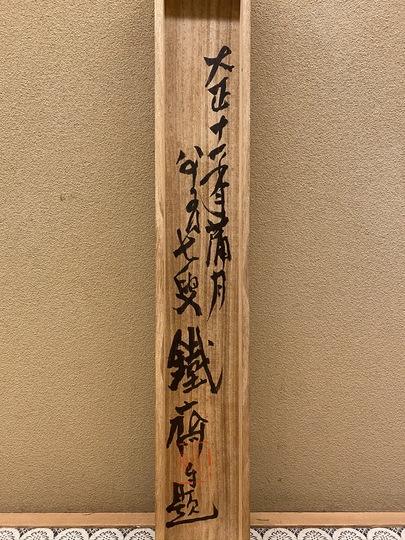 大正十一年蒲月
八十有七叟
鐵齋自題